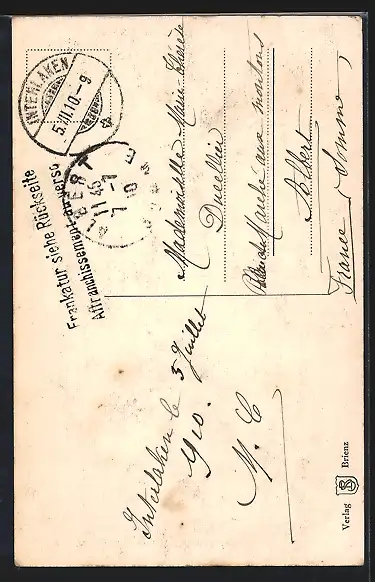 INTERLAKEN
5.VII.10-9
BERT
11 45
7-7
10
Frankatur siehe Rückseite
Affranchissement au verso
Mademoiselle Marie Thérèse
Ducellier
Place du Marché aux moutons
Albert
France Somme
Interlaken le 5 Juillet
1910.
M. C
Verlag Brienz